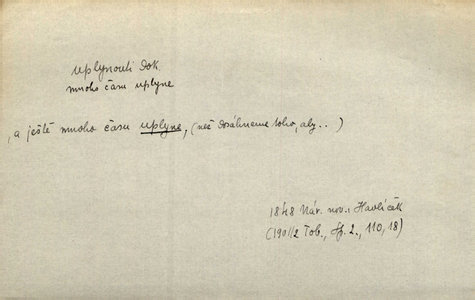 uplynouti dok.
mnoho času uplyne
, a ještě mnoho času uplyne, (než dosáhneme toho, aby..)
1848 Nár. nov.: Havlíček
(1901/2 Tob., sp. 2., 110, 18)